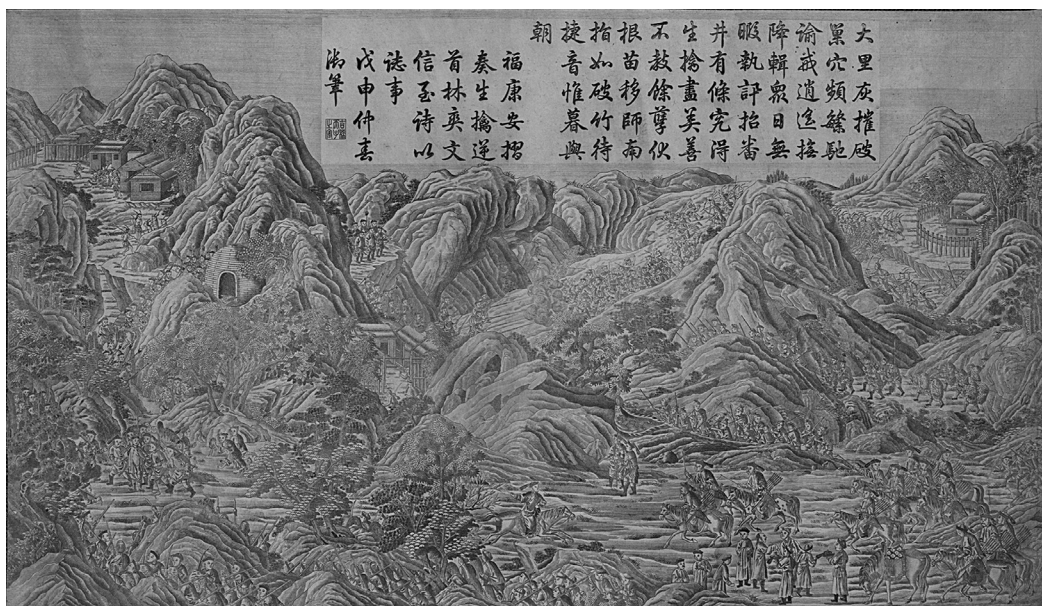 大里灰摧破
巢穴頻繁馳
諭戒逍遙接
降輯眾日無
暇執訊招番
井有條究得
生擒盡美善
不赦餘孽伏
根苗移師南
指如破竹待
捷音惟暮與
朝
福康安摺
奏生擒逆
首林爽文
信至詩以
誌事
戊申仲春
御筆